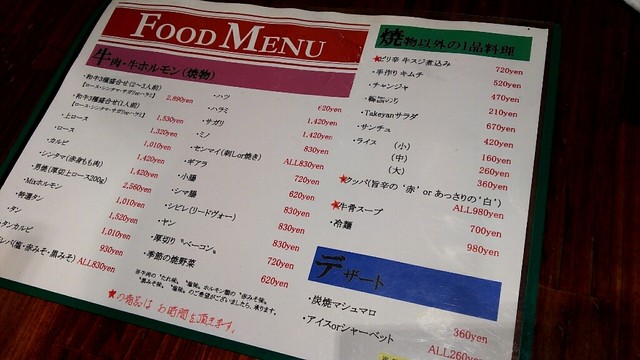 FOOD MENU
牛肉・牛ホルモン(焼物)
・和牛3種盛合せ(2〜3人前)
2,890yen
・和牛3種盛合せ(1人前)
1,530yen
・上ロース
1,320yen
・ロース
1,010yen
・カルビ
1,420yen
・シンタマ(赤身もも肉)
1,420yen
・男焼(厚切上ロース200g)
2,560yen
・Mixホルモン
1,010yen
・特選タン
1,520yen
・タン
1,010yen
タンカルビ
930yen
レバ(塩・赤みそ・黒みそ)
ALL830yen
・ハツ
620yen
・ハラミ
1,420yen
・サガリ
1,420yen
・ミノ
830yen
・センマイ(刺しor焼き)
ALL830yen
・ギアラ
720yen
・小腸
620yen
・シマ腸
830yen
・シビレ(リードヴォー)
830yen
・ヤン
830yen
・厚切り〝ベーコン〟
720yen
・季節の焼野菜
620yen
★の商品は お時間を頂きます。
焼物以外の1品料理
★ピリ辛 牛スジ煮込み
720yen
・手作りキムチ
520yen
・チャンジャ
470yen
・韓国のり
210yen
・Takeyanサラダ
670yen
・サンチュ
420yen
・ライス (小)
160yen
(中)
260yen
(大)
360yen
★クッパ(旨辛の‘赤’ or あっさりの‘白’)
ALL980yen
★牛骨スープ
700yen
・冷麺
980yen
デザート
・炭焼マシュマロ
360yen
・アイスorシャーベット
ALL260yen